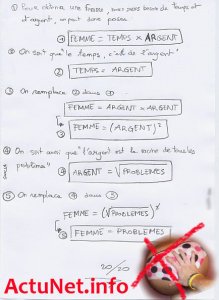 ① Pour obtenir une FEMME, nous avons besoin de temps et
d'argent, on peut donc poser:
① FEMME = TEMPS × ARGENT
② On sait que "le temps, c'est de l'argent"
② TEMPS = ARGENT
③ On remplace ② dans ①
FEMME = ARGENT × ARGENT
③ FEMME = (ARGENT)²
④ On sait aussi que "l'argent est la racine de tous
les
problèmes"
④ ARGENT = √PROBLEMES
⑤ On remplace ④ dans ③
FEMME = (√PROBLEMES)²
⑤ FEMME = PROBLEMES
20/20
ActuNet.info